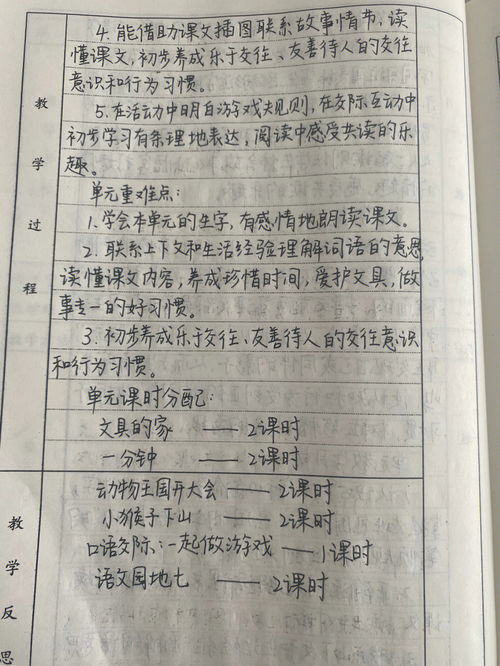 4. 能借助课文插图联系故事情节，读
懂课文，初步养成乐于交往、友善待人的交往
意识和行为习惯。
5. 在活动中明白游戏规则，在交际互动中
初步学习有条理地表达，阅读中感受共读的乐
趣。
单元重难点：
1. 学会本单元的生字，有感情地朗读课文。
2. 联系上下文和生活经验理解词语的意思，
读懂课文内容，养成珍惜时间，爱护文具，做
事专一的好习惯。
3. 初步养成乐于交往、友善待人的交往意识
和行为习惯。
单元课时分配：
文具的家 —— 2课时
一分钟 —— 2课时
动物王国开大会 —— 2课时
小猴子下山 —— 2课时
口语交际：一起做游戏 —— 1课时
语文园地七 —— 2课时
教
学
过
程
教
学
反
思